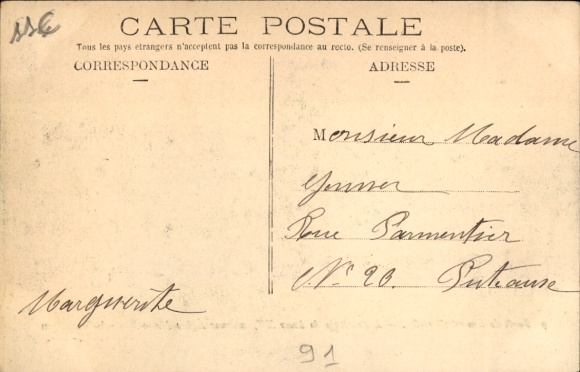 CARTE POSTALE
Tous les pays étrangers n'acceptent pas la correspondance au recto. (Se renseigner à la poste).
CORRESPONDANCE
ADRESSE
Monsieur Madame
Rue Parmentier
N° 20. Puteause
Marguerite
91